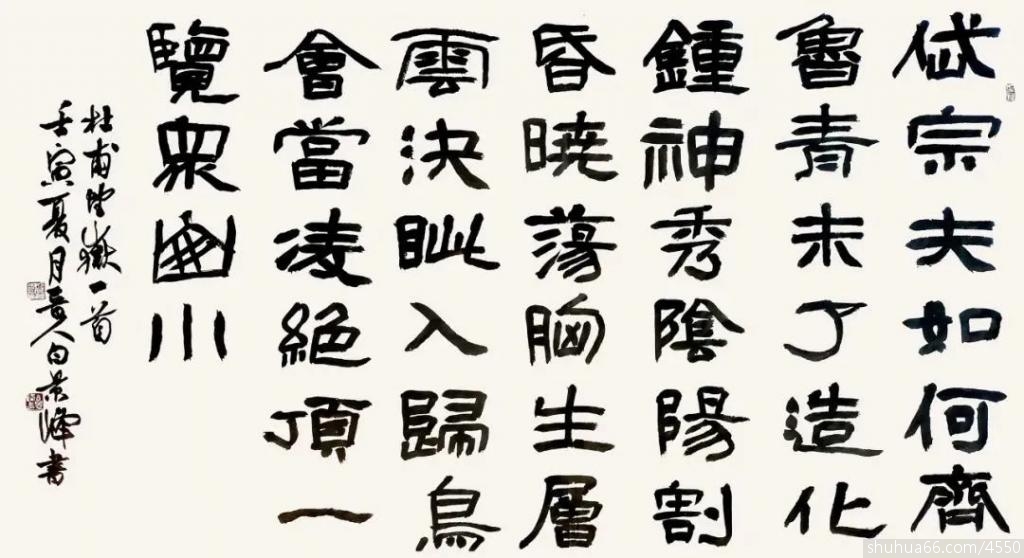 岱宗夫如何齊
魯青未了造化
鍾神秀陰陽割
昏曉蕩胸生層
雲決眦入歸鳥
會當凌絕頂一
覽眾山小
杜甫望嶽一首
壬寅夏月晋人白景峰書
shuhua66.com/4550